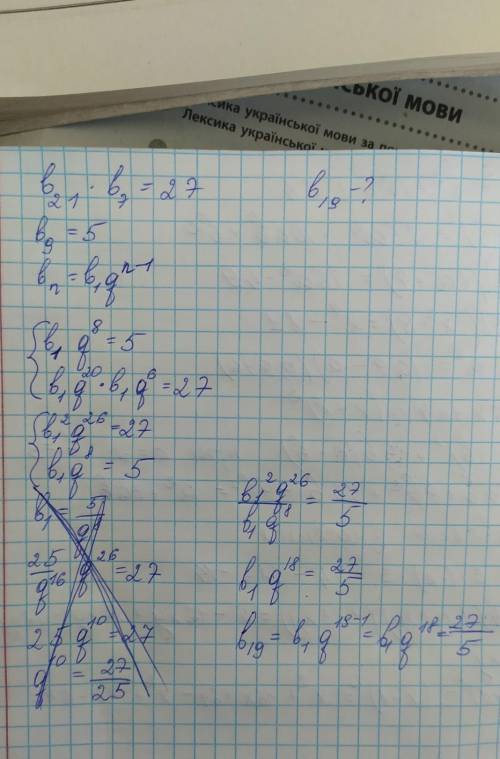 СЬКОЇ МОВИ
Лексика української мови за
b₂₁ · b₇ = 27
b₁₉ - ?
b₉ = 5
bₙ = b₁qⁿ⁻¹
b₁ q⁸ = 5
b₁q²⁰ · b₁q⁶ = 27
b₁²q²⁶ = 27
b₁q⁸ = 5
b₁ = 5/q⁸
25/q¹⁶ q²⁶ = 27
25 q¹⁰ = 27
q¹⁰ = 27/25
b₁²q²⁶/b₁q⁸ = 27/5
b₁q¹⁸ = 27/5
b₁₉ = b₁q¹⁹⁻¹ = b₁q¹⁸ = 27/5